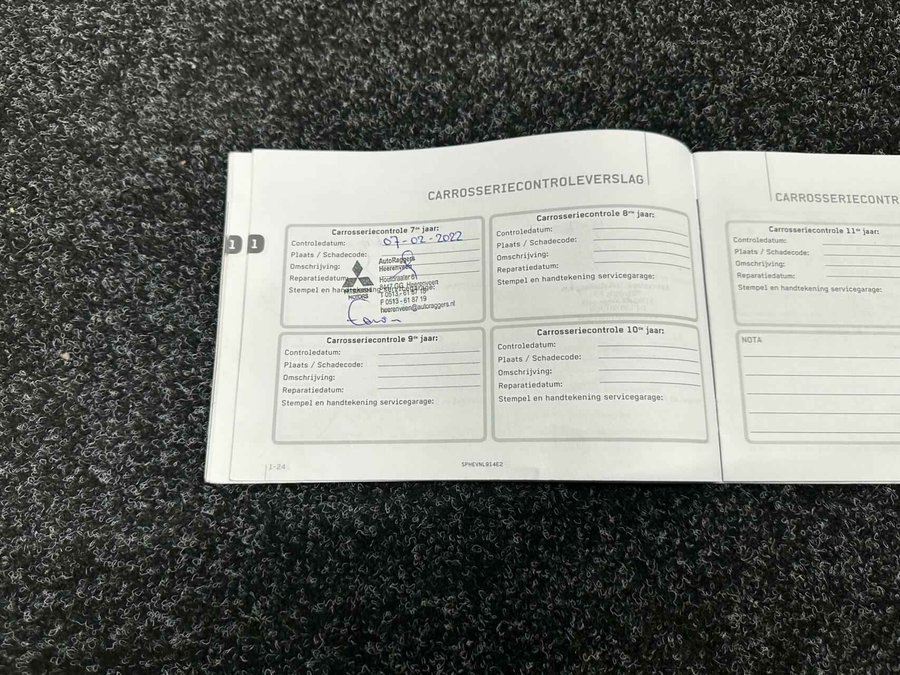 CARROSSERIECONTROLEVERSLAG
1 1
Carrosseriecontrole 7de jaar:
Controledatum: 07-02-2022
Plaats / Schadecode:
Omschrijving:
Reparatiedatum:
Stempel en handtekening servicegarage:
MOTORS
AutoRaggers
Heerenveen
8447 DG Heerenveen
T 0513 - 61 87 18
F 0513 - 61 87 19
heerenveen@autoraggers.nl
Carrosseriecontrole 8ste jaar:
Controledatum:
Plaats / Schadecode:
Omschrijving:
Reparatiedatum:
Stempel en handtekening servicegarage:
Carrosseriecontrole 9de jaar:
Controledatum:
Plaats / Schadecode:
Omschrijving:
Reparatiedatum:
Stempel en handtekening servicegarage:
Carrosseriecontrole 10de jaar:
Controledatum:
Plaats / Schadecode:
Omschrijving:
Reparatiedatum:
Stempel en handtekening servicegarage:
1-24
SPHEVNL914E2
CARROSSERIECONTR
Carrosseriecontrole 11de jaar:
Controledatum:
Plaats / Schadecode:
Omschrijving:
Reparatiedatum:
Stempel en handtekening servicegarage:
NOTA